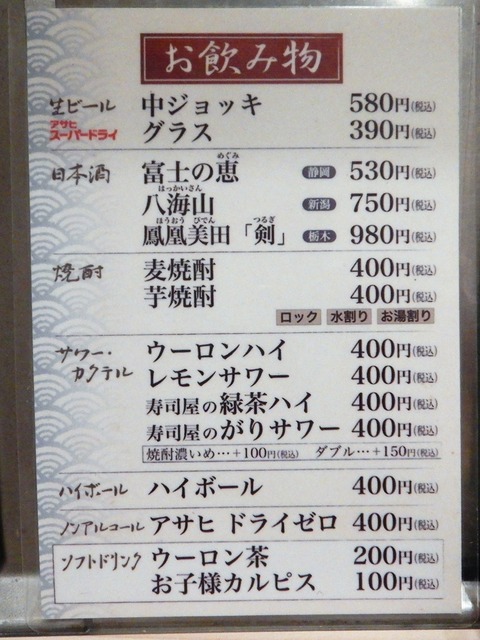 お飲み物
生ビール 中ジョッキ 580円(税込)
アサヒ スーパードライ グラス 390円(税込)
日本酒 富士の恵 めぐみ 静岡 530円(税込)
八海山 はっかいさん 新潟 750円(税込)
鳳凰美田「剣」 ほうおう びでん つるぎ 栃木 980円(税込)
焼酎 麦焼酎 400円(税込)
芋焼酎 400円(税込)
ロック 水割り お湯割り
サワー・カクテル ウーロンハイ 400円(税込)
レモンサワー 400円(税込)
寿司屋の緑茶ハイ 400円(税込)
寿司屋のがりサワー 400円(税込)
焼酎濃いめ…+100円(税込) ダブル…+150円(税込)
ハイボール ハイボール 400円(税込)
ノンアルコール アサヒ ドライゼロ 400円(税込)
ソフトドリンク ウーロン茶 200円(税込)
お子様カルピス 100円(税込)